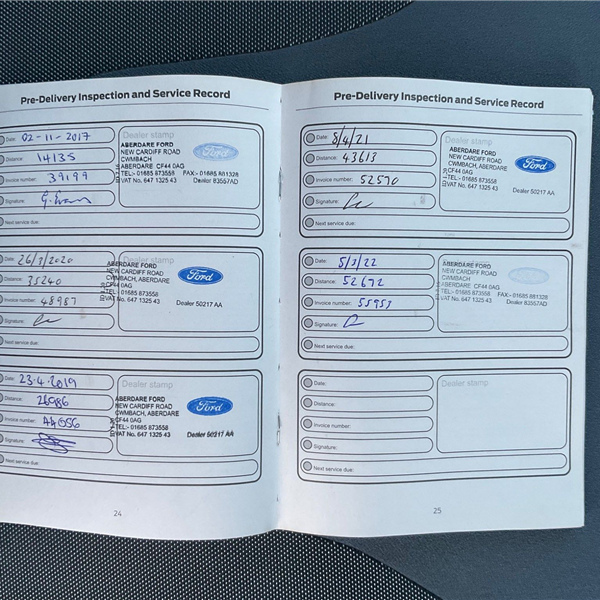 Pre-Delivery Inspection and Service Record
Date: 02-11-2017
Distance: 14135
Invoice number: 39199
Signature:
Next service due:
Dealer stamp
ABERDARE FORD
NEW CARDIFF ROAD
CWMBACH
ABERDARE CF44 0AG
TEL:- 01685 873558 FAX:- 01685 881328
VAT No. 647 1325 43 Dealer 83557AD
Ford
Date: 26/3/2020
Distance: 35240
Invoice number: 48987
Signature:
Next service due:
Dealer stamp
ABERDARE FORD
NEW CARDIFF ROAD
CWMBACH, ABERDARE
CF44 0AG
TEL:- 01685 873558
VAT No. 647 1325 43
Ford
Dealer 50217 AA
Date: 23.4.2019
Distance: 26986
Invoice number:
Signature:
Next service due:
Dealer stamp
ABERDARE FORD
NEW CARDIFF ROAD
CWMBACH, ABERDARE
CF44 0AG
TEL:- 01685 873558
VAT No. 647 1325 43
Ford
Dealer 50217 AA
24
Pre-Delivery Inspection and Service Record
Date: 8/4/21
Distance: 43613
Invoice number: 52570
Signature:
Next service due:
Dealer stamp
ABERDARE FORD
NEW CARDIFF ROAD
CWMBACH, ABERDARE
CF44 0AG
TEL:- 01685 873558
VAT No. 647 1325 43
Ford
Dealer 50217 AA
Date: 5/3/22
Distance: 52672
Invoice number: 55953
Signature:
Next service due:
Dealer stamp
ABERDARE FORD
NEW CARDIFF ROAD
CWMBACH
ABERDARE CF44 0AG
TEL:- 01685 873558 FAX:- 01685 881328
VAT No. 647 1325 43 Dealer 83557AD
Ford
Date:
Distance:
Invoice number:
Signature:
Next service due:
Dealer stamp
25